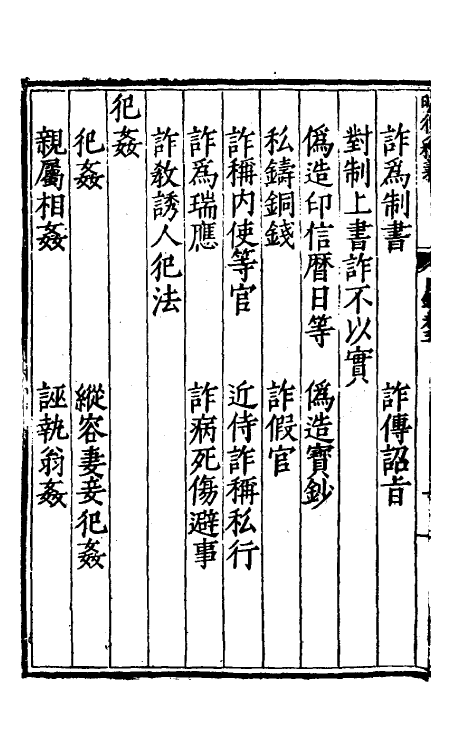 詐爲制書　詐傳詔旨
對制上書詐不以實
僞造印信曆日等　僞造寶鈔
私鑄銅錢　詐假官
詐稱内使等官　近侍詐稱私行
詐爲瑞應　詐病死傷避事
詐教誘人犯法
犯姦
犯姦　縱容妻妾犯姦
親屬相姦　誣執翁姦